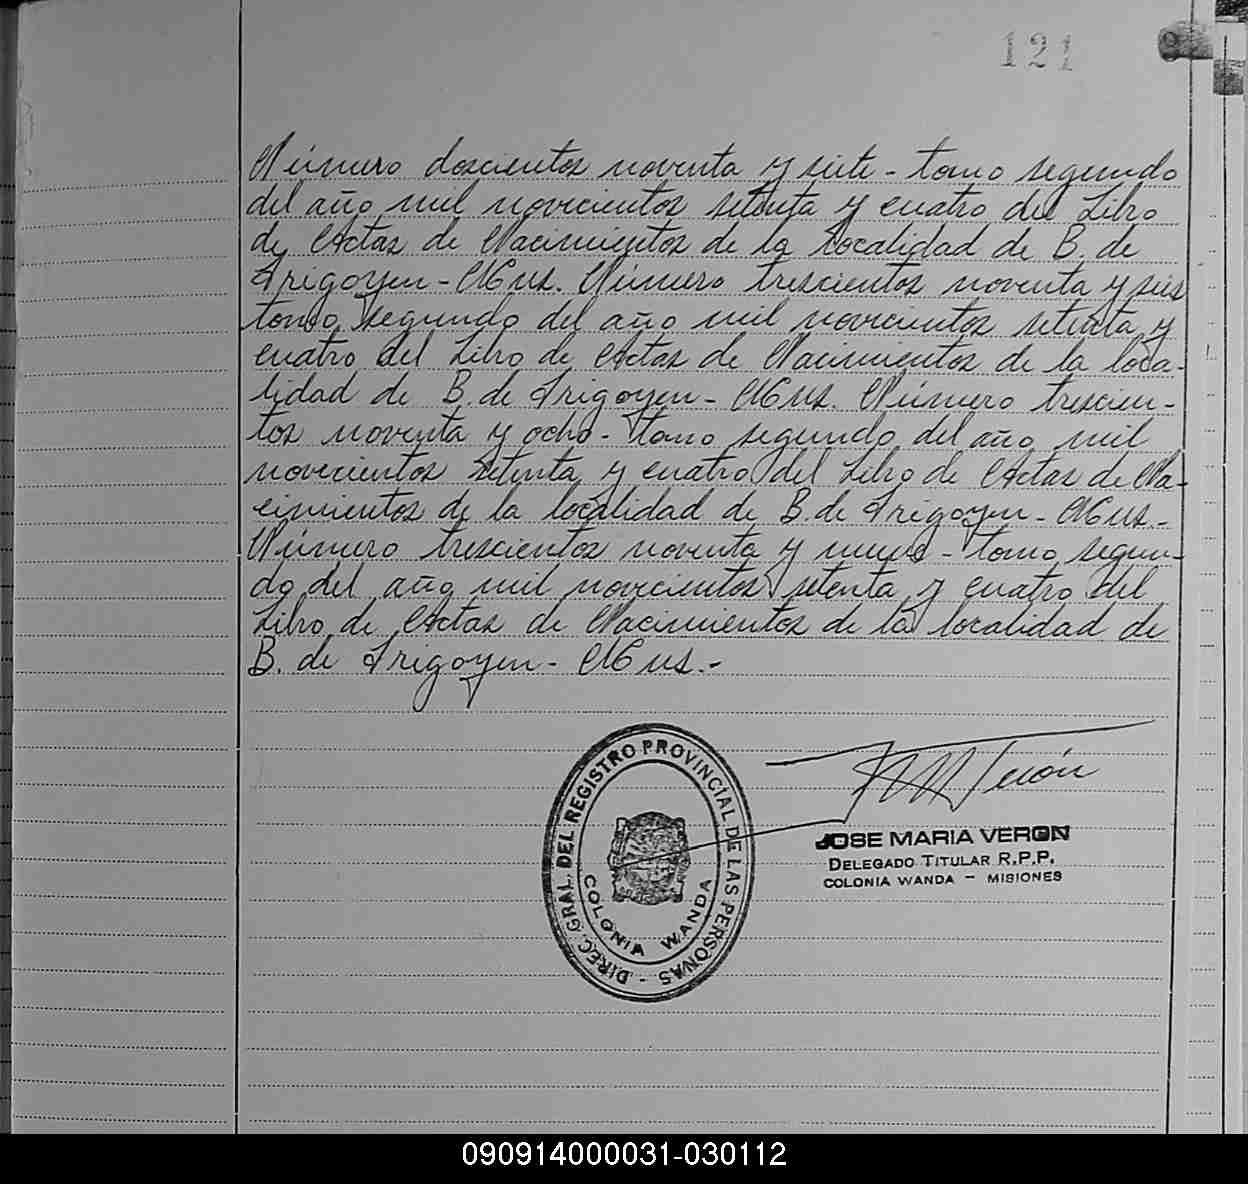 121
Número doscientos noventa y siete - tomo segundo
del año mil novecientos setenta y cuatro del Libro
de Actas de Nacimientos de la localidad de B. de
Irigoyen - Mnes. Número trescientos noventa y seis
tomo segundo del año mil novecientos setenta y
cuatro del Libro de Actas de Nacimientos de la loca-
lidad de B. de Irigoyen - Mnes. Número trescien-
tos noventa y ocho - tomo segundo del año mil
novecientos setenta y cuatro del Libro de Actas de Na-
cimientos de la localidad de B. de Irigoyen - Mnes.-
Número trescientos noventa y nueve - tomo segun-
do del año mil novecientos setenta y cuatro del
Libro de Actas de Nacimientos de la localidad de
B. de Irigoyen - Mnes.-
DIREC. GRAL. DEL REGISTRO PROVINCIAL DE LAS PERSONAS -
COLONIA WANDA
JOSE MARIA VERON
DELEGADO TITULAR R.P.P.
COLONIA WANDA - MISIONES
090914000031-030112